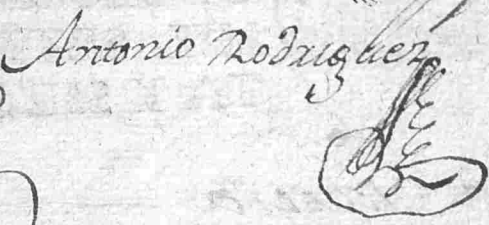 Antonio Rodriguez